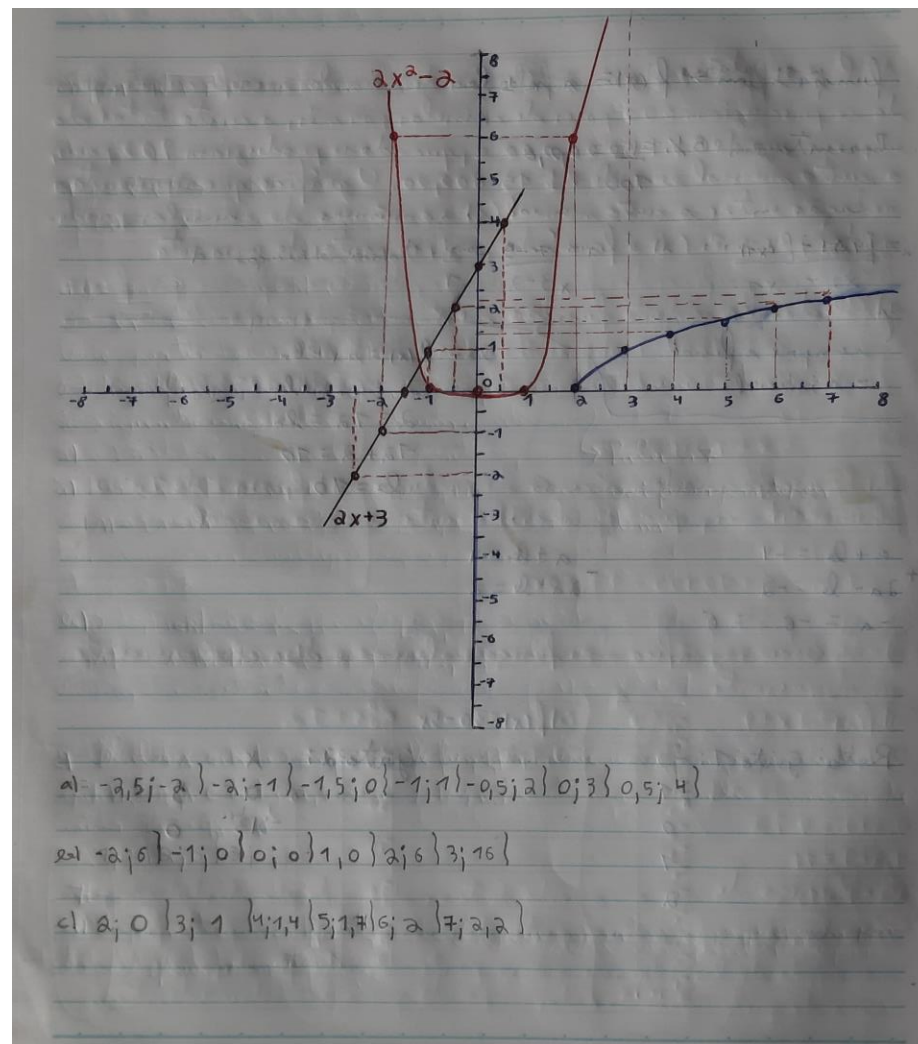 2x²-2
8
7
6
5
4
3
2
1
0
-8 -7 -6 -5 -4 -3 -2 -1 1 2 3 4 5 6 7 8
-1
-2
-3
-4
-5
-6
-7
-8
2x+3
a) -2,5;-2 } -2;-1 } -1,5;0 } -1;1 } -0,5;2 } 0;3 } 0,5;4 }
-2;6 } -1;0 } 0;0 } 1,0 } 2;6 } 3;16 }
c) 2;0 } 3;1 } 4;1,4 } 5;1,7 } 6;2 } 7;2,2 }